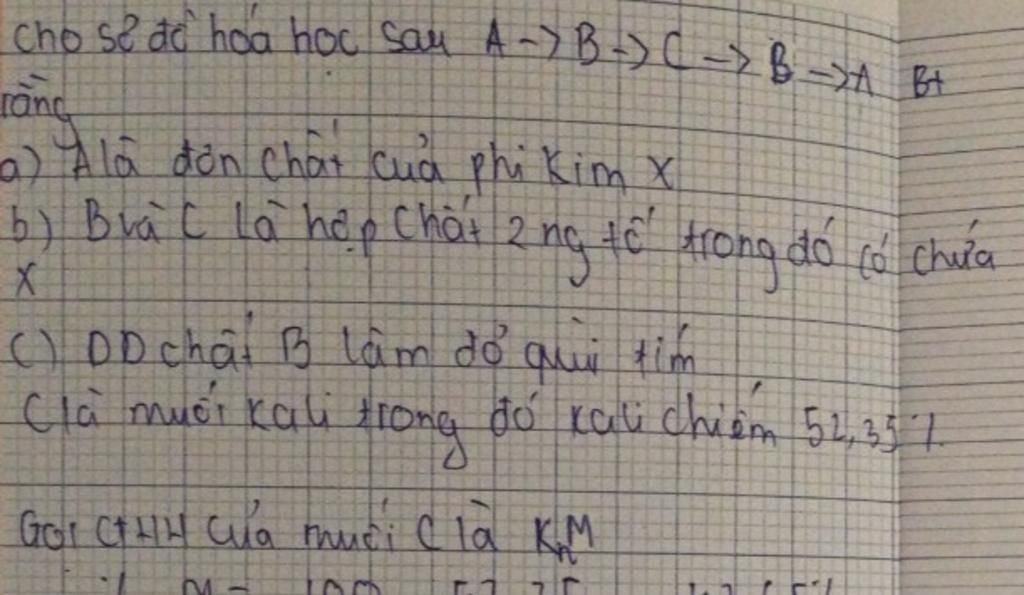 cho sơ đồ hoá học sau A -> B -> C -> B -> A Bt
rằng
a) A là đơn chất của phi kim X
b) B và C là hợp chất 2 ng tố trong đó có chứa
X
c) DD chất B làm đỏ quì tím
C là muối kali trong đó kali chiếm 52,35%
Gọi CTHH của muối C là KnM